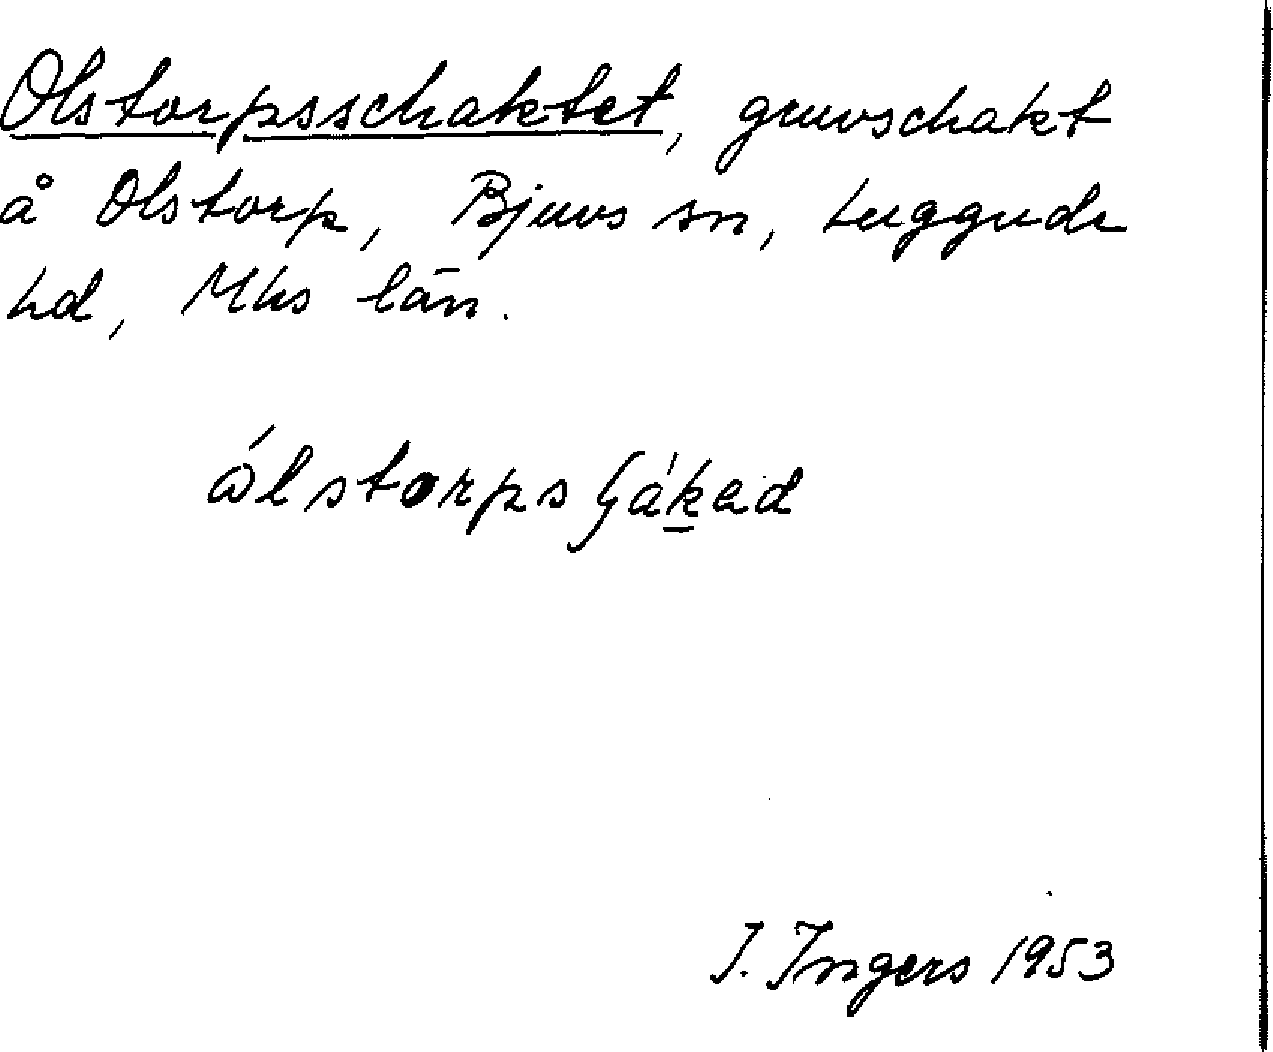 Olstorpsschaktet, gruvschakt
å Olstorp, Bjuvs sn, Luggude
hd, Mhs län.
I. Ingers 1953